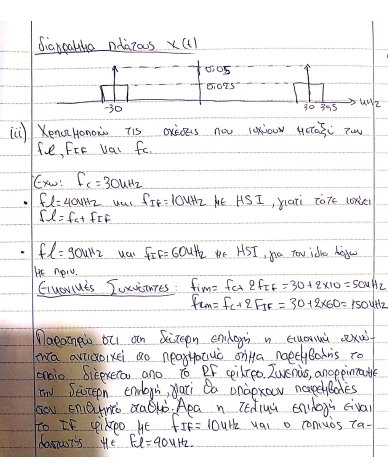 διάγραμμα πλάτους X(t)
0.05
0.025
-30 30 30.5 MHz
(ii) Χρησιμοποιώ τις σχέσεις που ισχύουν μεταξύ των
fl, fIF και fc.
Έχω: fc = 30MHz
• fl = 40MHz και fIF = 10MHz με HSI, γιατί τότε ισχύει
fl = fc + fIF
• fl = 90MHz και fIF = 60MHz με HSI, για τον ίδιο λόγο
με πριν.
Εικονικές Συχνότητες: fim = fc + 2fIF = 30 + 2x10 = 50MHz
fim = fc + 2fIF = 30 + 2x60 = 150MHz
Παρατηρώ ότι στη δεύτερη επιλογή η εικονική συχνό-
τητα αντιστοιχεί στο πραγματικό σήμα παρεμβολής το
οποίο διέρχεται από το RF φίλτρο. Συνεπώς, απορρίπτουμε
την δεύτερη επιλογή, γιατί θα υπάρχουν παρεμβολές
στον επιθυμητό σταθμό. Άρα η τελική επιλογή είναι
το IF φίλτρο με fIF = 10MHz και ο τοπικός τα-
λαντωτής με fl = 40MHz.